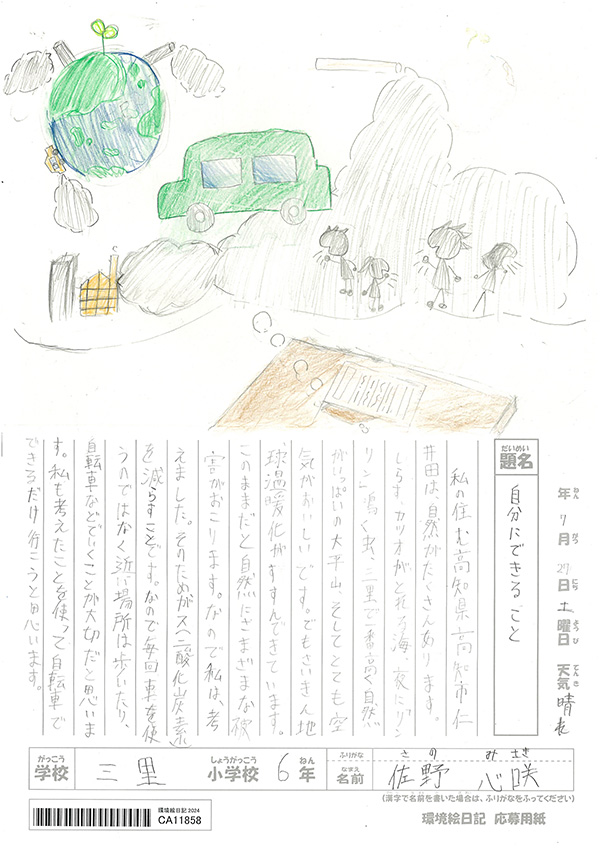 だいめい
題名
自分にできること
年 ねん 7 月 がつ 27 日 にち 土 曜日 ようび 天気 てんき 晴れ
私の住む高知県高知市仁
井田は、自然がたくさんあります。
しらす、カツオがとれる海、家に「リン
リン」鳴く虫、三里で一番高く自然
がいっぱいの大平山、そしてとても空
気がおいしいです。でもさいきん地
球温暖化がすすんできています。
このままだと自然にさまざまな被
害がおこります。なので私は、考
えました。そのためガスへ二酸化炭素
を減らすことです。なので毎回車を使
うのではなく近い場所は歩いたり、
自転車などでいくことが大切だと思いま
す。私も考えたことを使って自転車で
できるだけ行こうと思います。
がっこう
学校 三里 小学校 しょうがっこう 6 年 ねん
ふりがな さの みさき
なまえ
名前 佐野 心咲
(漢字で名前を書いた場合は、ふりがなをふってください)
環境絵日記 2024
CA11858
環境絵日記 応募用紙